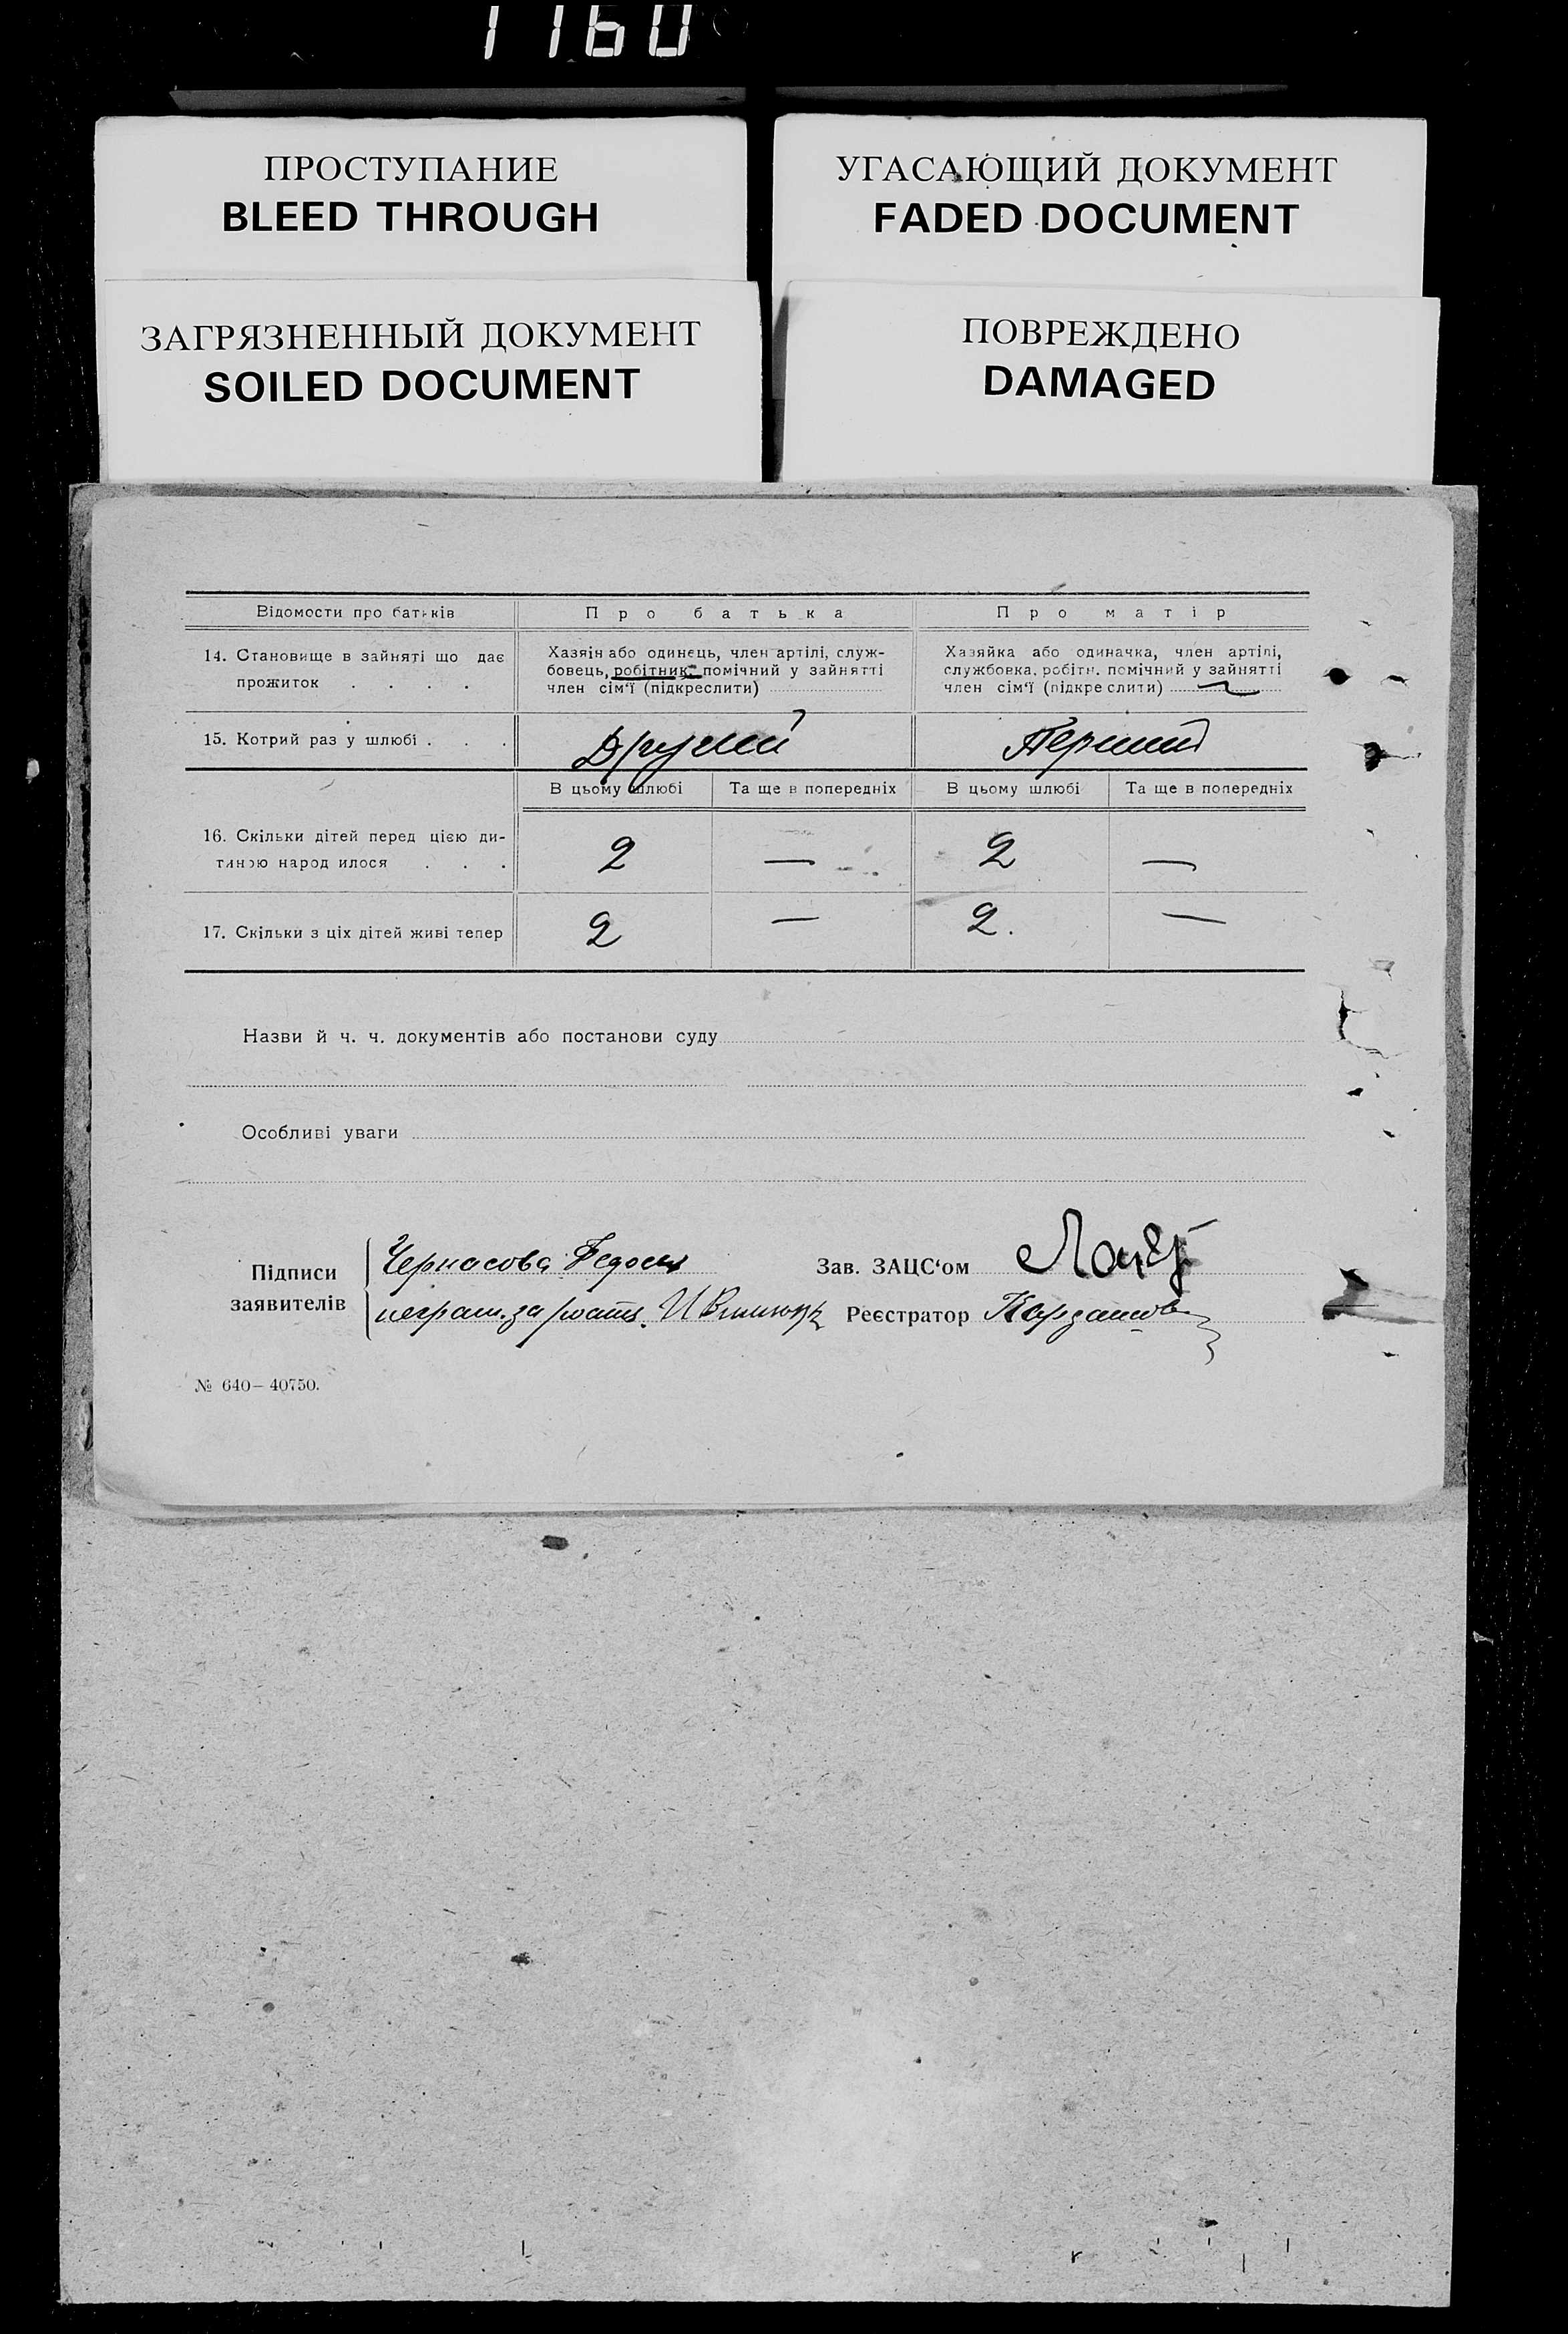 1160
ПРОСТУПАНИЕ
BLEED THROUGH
УГАСАЮЩИЙ ДОКУМЕНТ
FADED DOCUMENT
ЗАГРЯЗНЕННЫЙ ДОКУМЕНТ
SOILED DOCUMENT
ПОВРЕЖДЕНО
DAMAGED
Відомости про батьків
Про батька
Про матір
14. Становище в зайняті що дає
прожиток . . . .
Хазяін або одинець, член артілі, служ-
бовець, робітник, помічний у зайнятті
член сім'ї (підкреслити)
Хазяйка або одиначка, член артілі,
службовка, робітн. помічний у зайнятті
член сім'ї (підкреслити)
15. Котрий раз у шлюбі . . .
Другий
Перший
В цьому шлюбі
Та ще в попередніх
В цьому шлюбі
Та ще в попередніх
16. Скільки дітей перед цією ди-
тиною народилося . . .
2
—
2
—
17. Скільки з ціх дітей живі тепер
2
—
2.
—
Назви й ч. ч. документів або постанови суду
Особливі уваги
Підписи
заявителів
Черкасова
неграм. за
Зав. ЗАЦС'ом
Реєстратор
№ 640—40750.